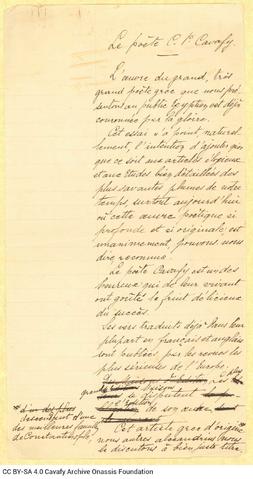 Le poète C. P. Cavafy.
L'œuvre du grand, très
grand poète grec que nous pré-
sentons au public Egyptien est déjà
couronnée par la gloire.
Cet essai n'a point, naturel-
lement, l'intention d'ajouter quoi
que ce soit aux articles élogieux
et aux études bien détaillées des
plus savantes plumes de notre
temps, surtout aujourd'hui
où cette œuvre poétique si
profonde et si originale est
unanimement, pouvons-nous
dire reconnue.
Le poète Cavafy est un des
heureux qui de leur vivant
ont goûté le fruit délicieux
du succès.
Ses vers traduits déjà dans leur
plupart en français et anglais
sont publiés par les revues les
plus sérieuses de l'Europe
se disputent
de son
d'un des plus
descendant d'une
des meilleures familles
de Constantinople
Cet artiste grec d'origine
nous autres alexandrins
le discutons à bien juste titre
CC BY-SA 4.0 Cavafy Archive Onassis Foundation